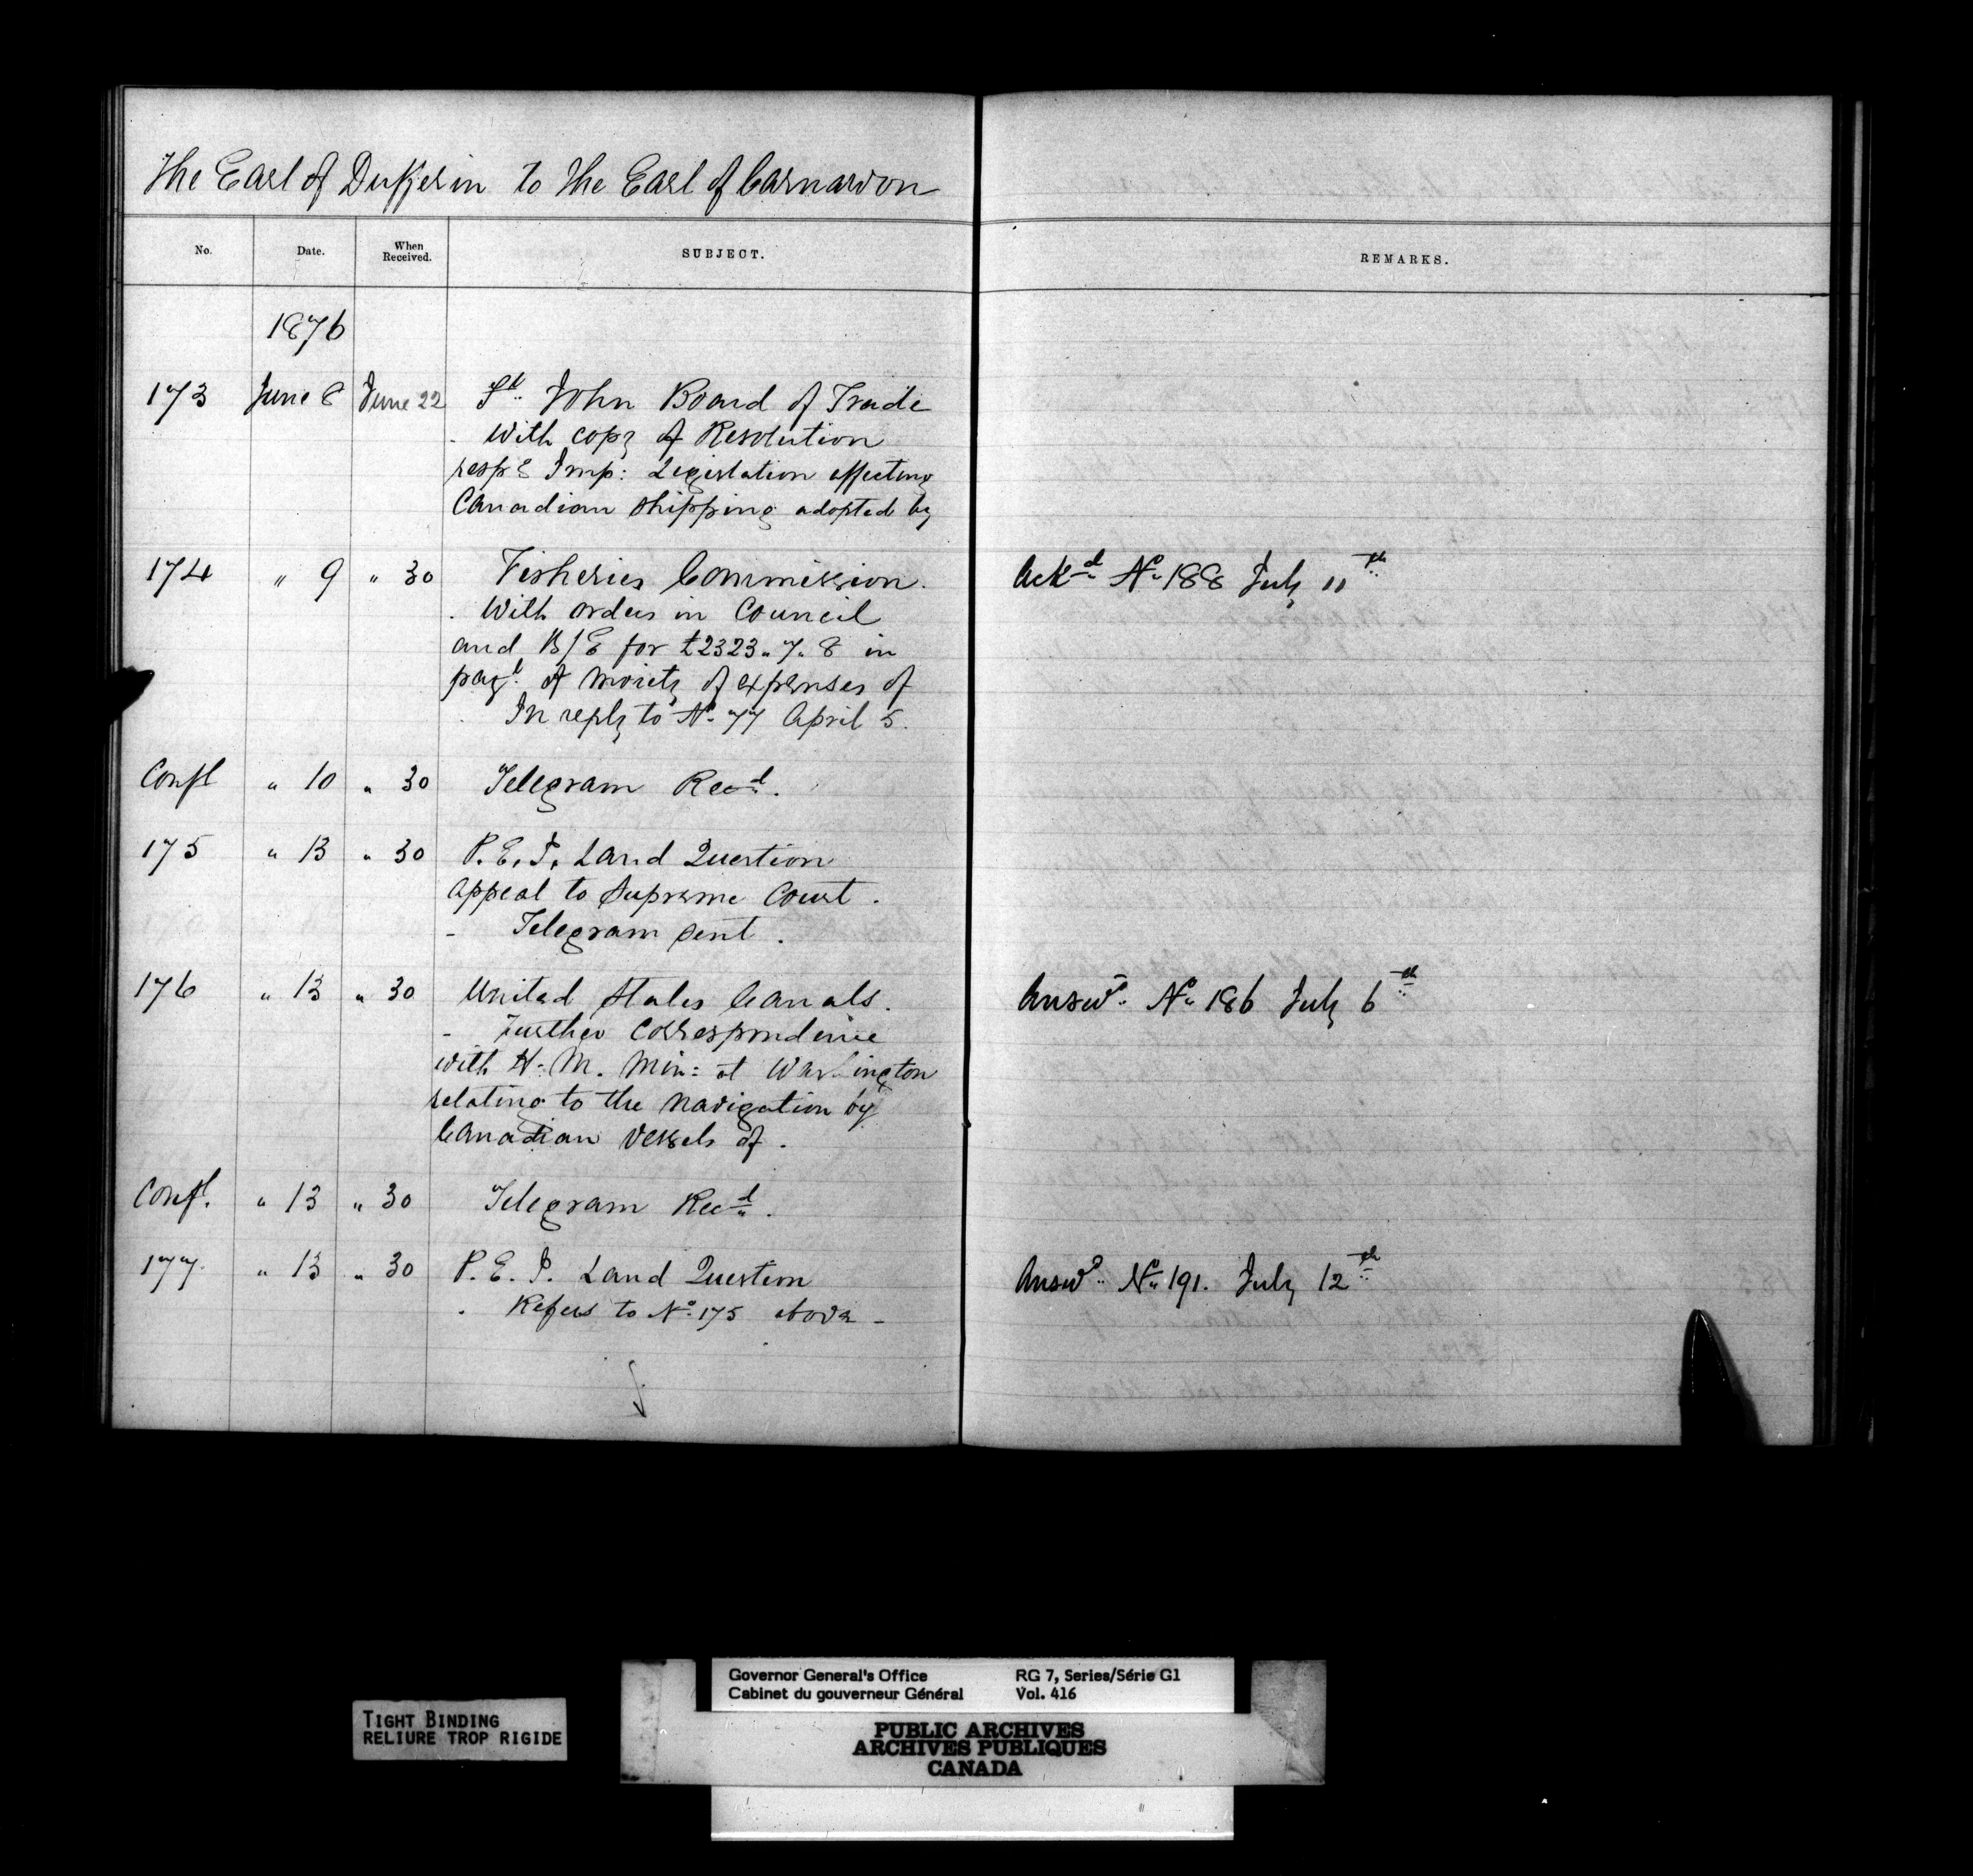 The Earl of Dufferin to The Earl of Carnarvon
No. Date. When Received. SUBJECT. REMARKS.
1876
173 June 8 June 22 St. John Board of Trade
- With copy of Resolution
respg Imp: Legislation affecting
Canadian shipping adopted by
174 " 9 " 30 Fisheries Commission. Ackd No 188 July 11th
. With orders in Council
and B/E for £2323.7.8 in
payt. of moiety of expenses of
. In reply to No 77 April 5.
Confl " 10 " 30 Telegram Recd.
175 " 13 " 30 P.E.I. Land Question
Appeal to Supreme Court.
- Telegram sent.
176 " 13 " 30 United States Canals. Answd. No 186 July 6th
- Further Correspondence
with H.M. Min: at Washington
relating to the navigation by
Canadian Vessels of.
Confl. " 13 " 30 Telegram Recd.
177. " 13 " 30 P.E.I. Land Question Answd. No 191. July 12th
. Refers to No. 175 above -
TIGHT BINDING
RELIURE TROP RIGIDE
Governor General's Office RG 7, Series/Série G1
Cabinet du gouverneur Général Vol. 416
PUBLIC ARCHIVES
ARCHIVES PUBLIQUES
CANADA